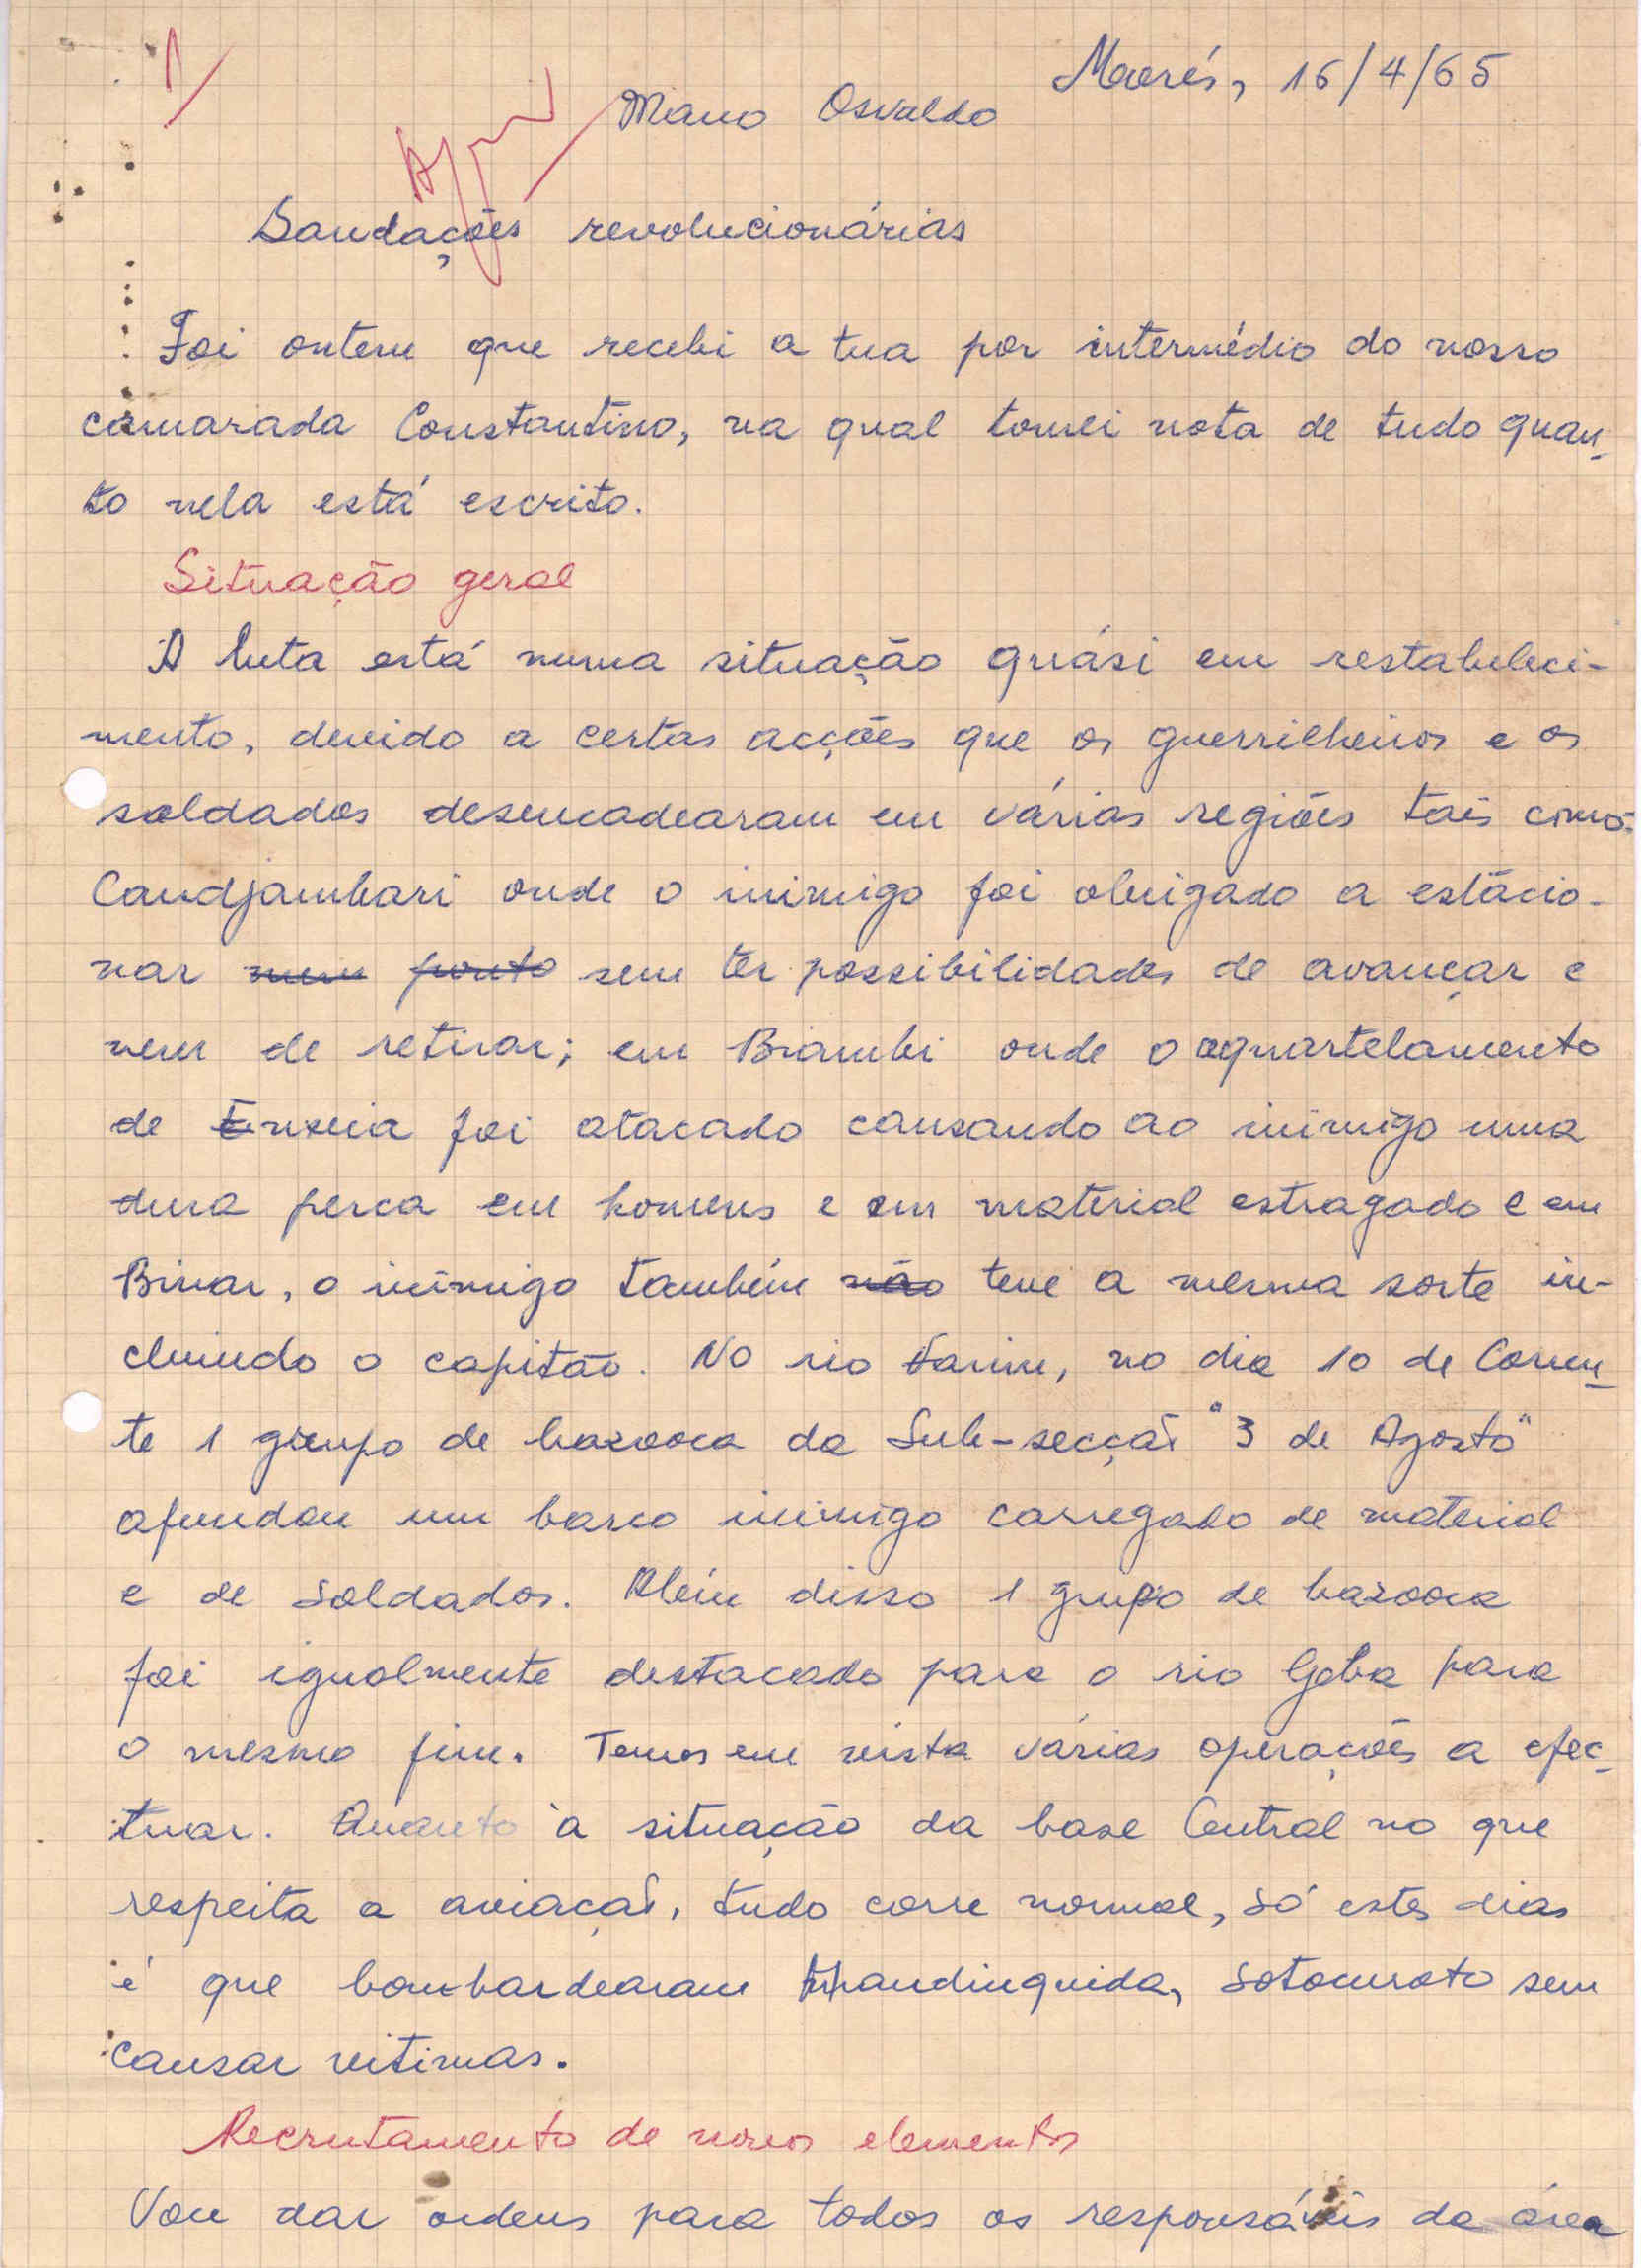 1
Maorés, 16/4/65
Mano Osvaldo
Saudações revolucionárias
Foi ontem que recebi a tua por intermédio do nosso
camarada Constantino, na qual tomei nota de tudo quan-
to nela está escrito.
Situação geral
A luta está numa situação quási em restabeleci-
mento, devido a certas acções que os guerrilheiros e os
soldados desencadearam em várias regiões tais como:
Candjambari onde o inimigo foi obrigado a estácio-
nar num ponto sem ter possibilidades de avançar e
nem de retirar; em Biambi onde o aquartelamento
de foi atacado causando ao inimigo uma
dura perca em homens e em material estragado e em
Binar, o inimigo também não teve a mesma sorte in-
cluindo o capitão. No rio Farim, no dia 10 de Corren-
te 1 grupo de bazooca da Sub-secção "3 de Agosto"
afundou um barco inimigo carregado de material
e de soldados. Além disso 1 grupo de bazooca
foi igualmente destacado para o rio Geba para
o mesmo fim. Temos em vista várias operações a efec-
tuar. Quanto à situação da base Central no que
respeita a aviação, tudo corre normal, só estes dias
é que bombardearam Mandinguida, Sotocunoto sem
causar vitimas.
Recrutamento de novos elementos
Vou dar ordens para todos os responsáveis da área